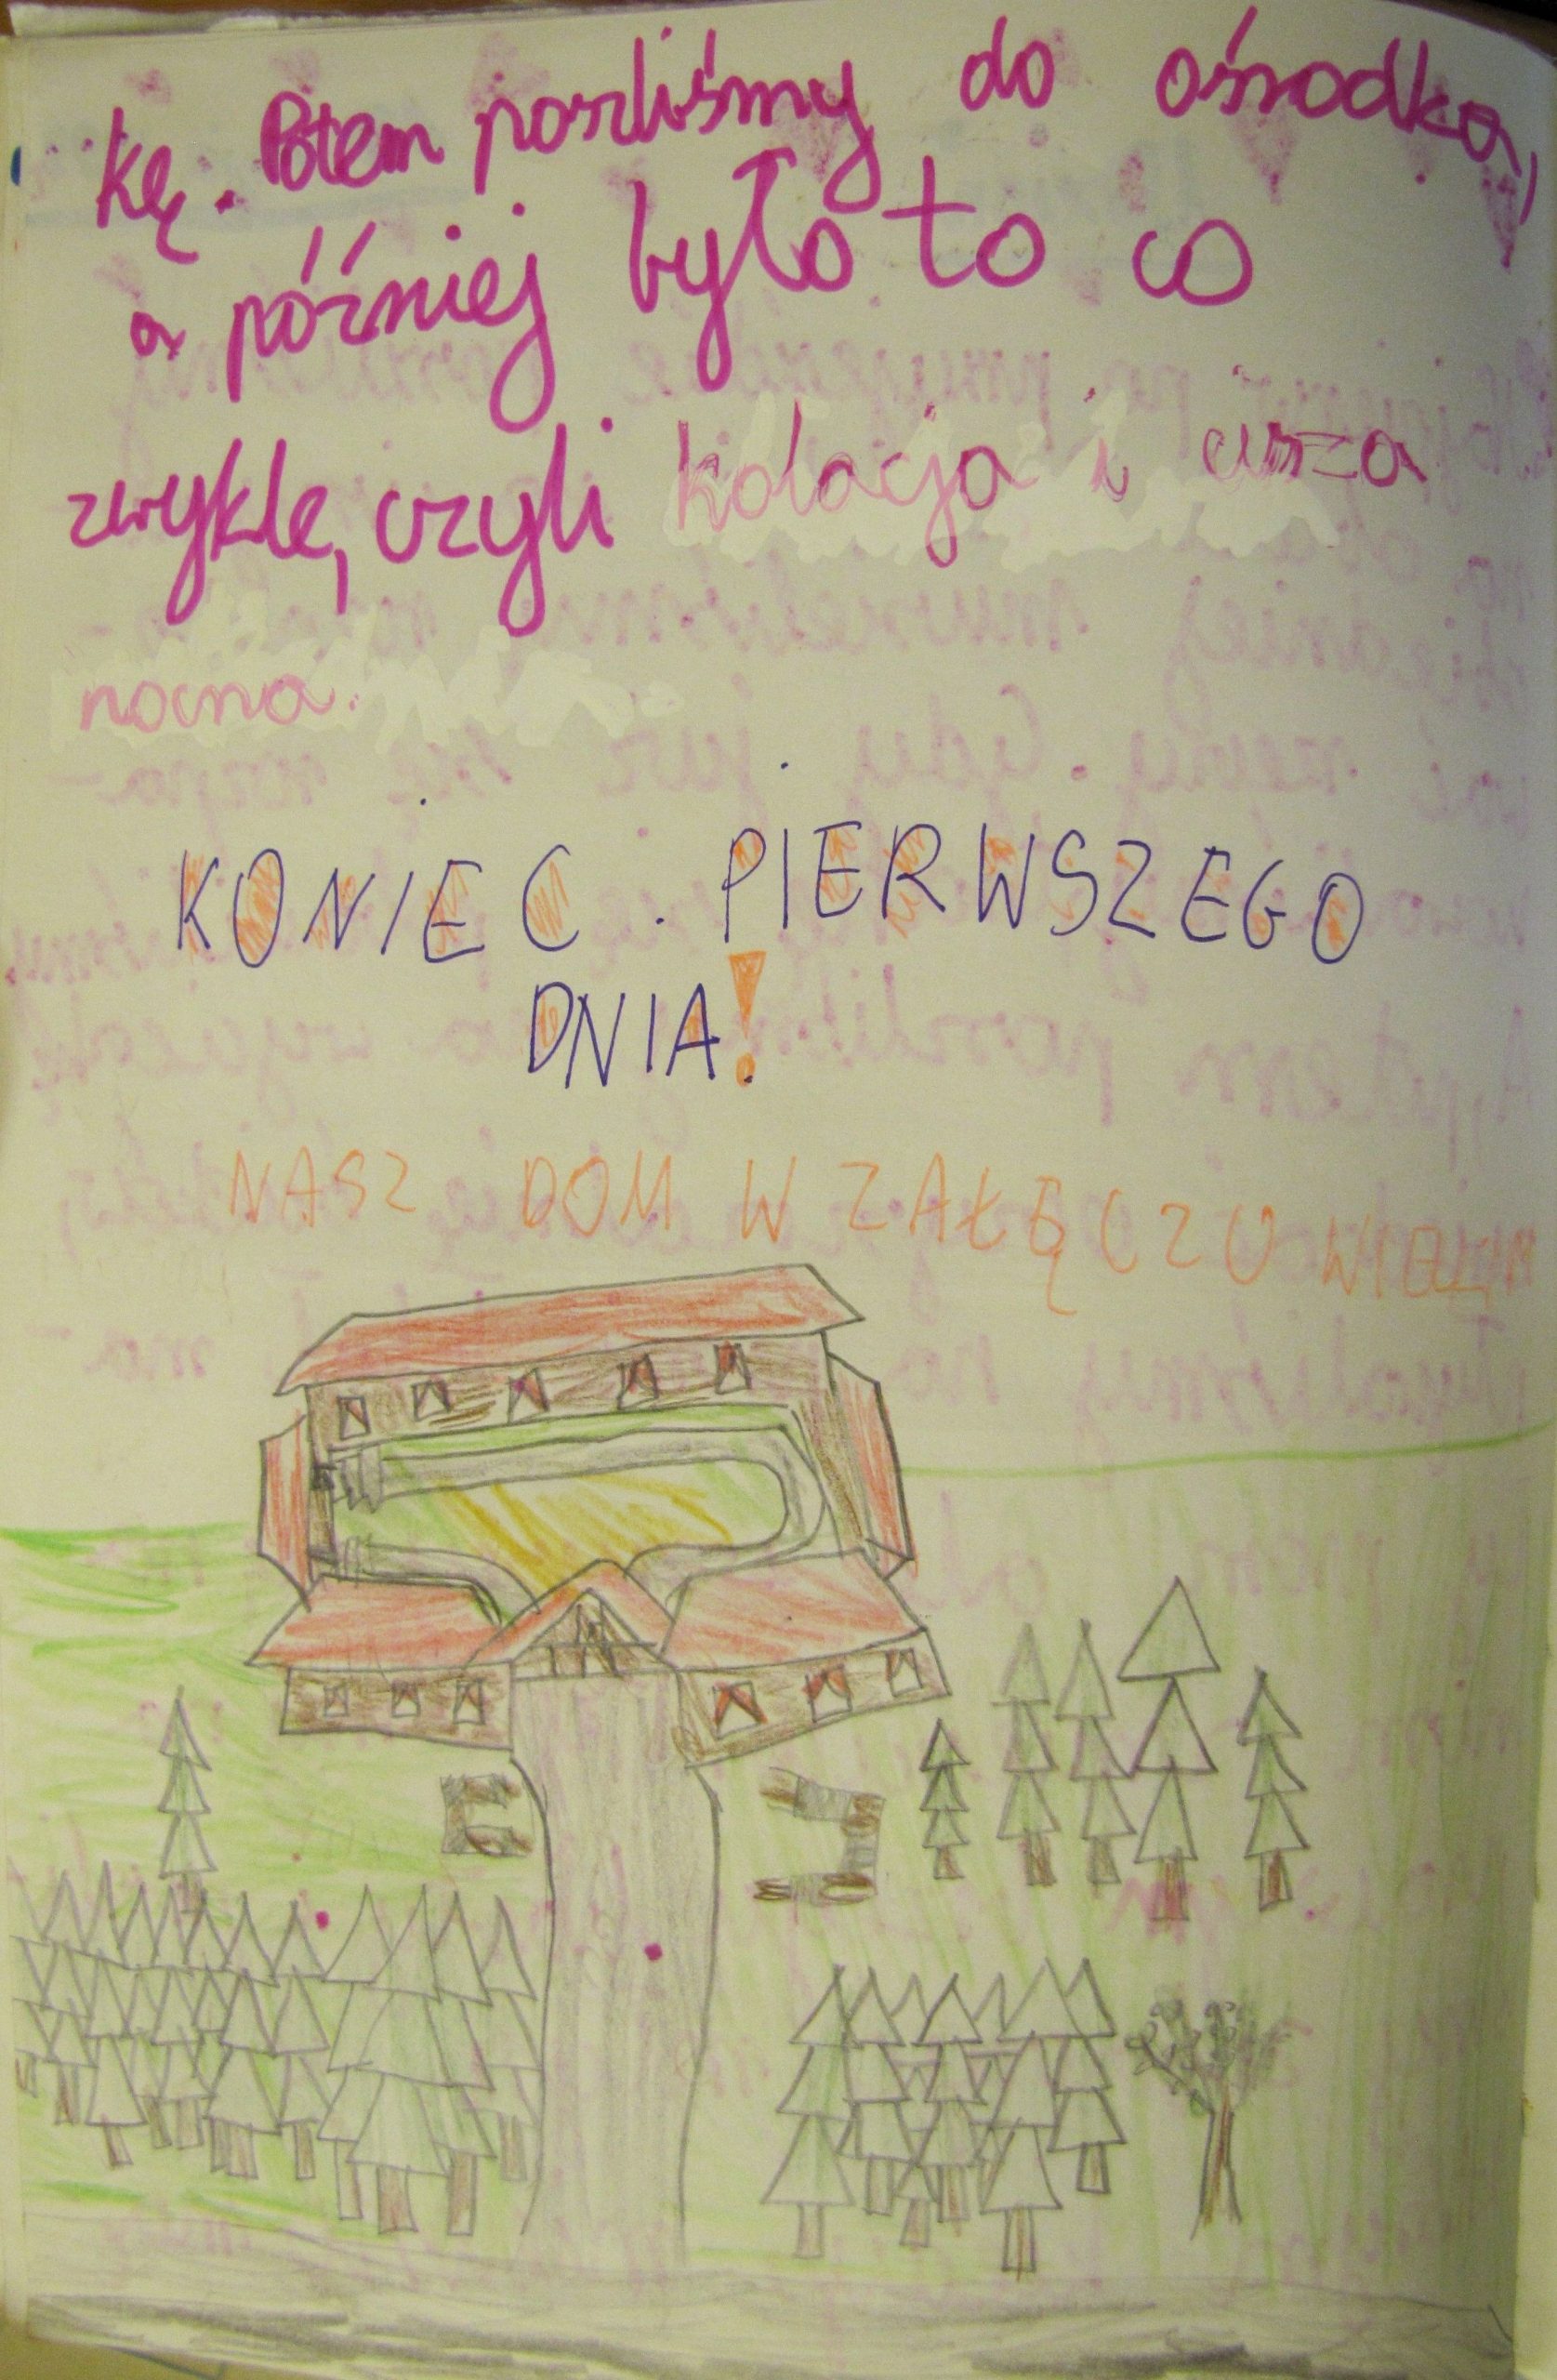 kę. Potem poszliśmy do ośrodka,
a później było to co
zwykle, czyli kolacja i cisza
nocna.
KONIEC . PIERWSZEGO
DNIA!
NASZ DOM W ZAŁĘCZU WIELKIM